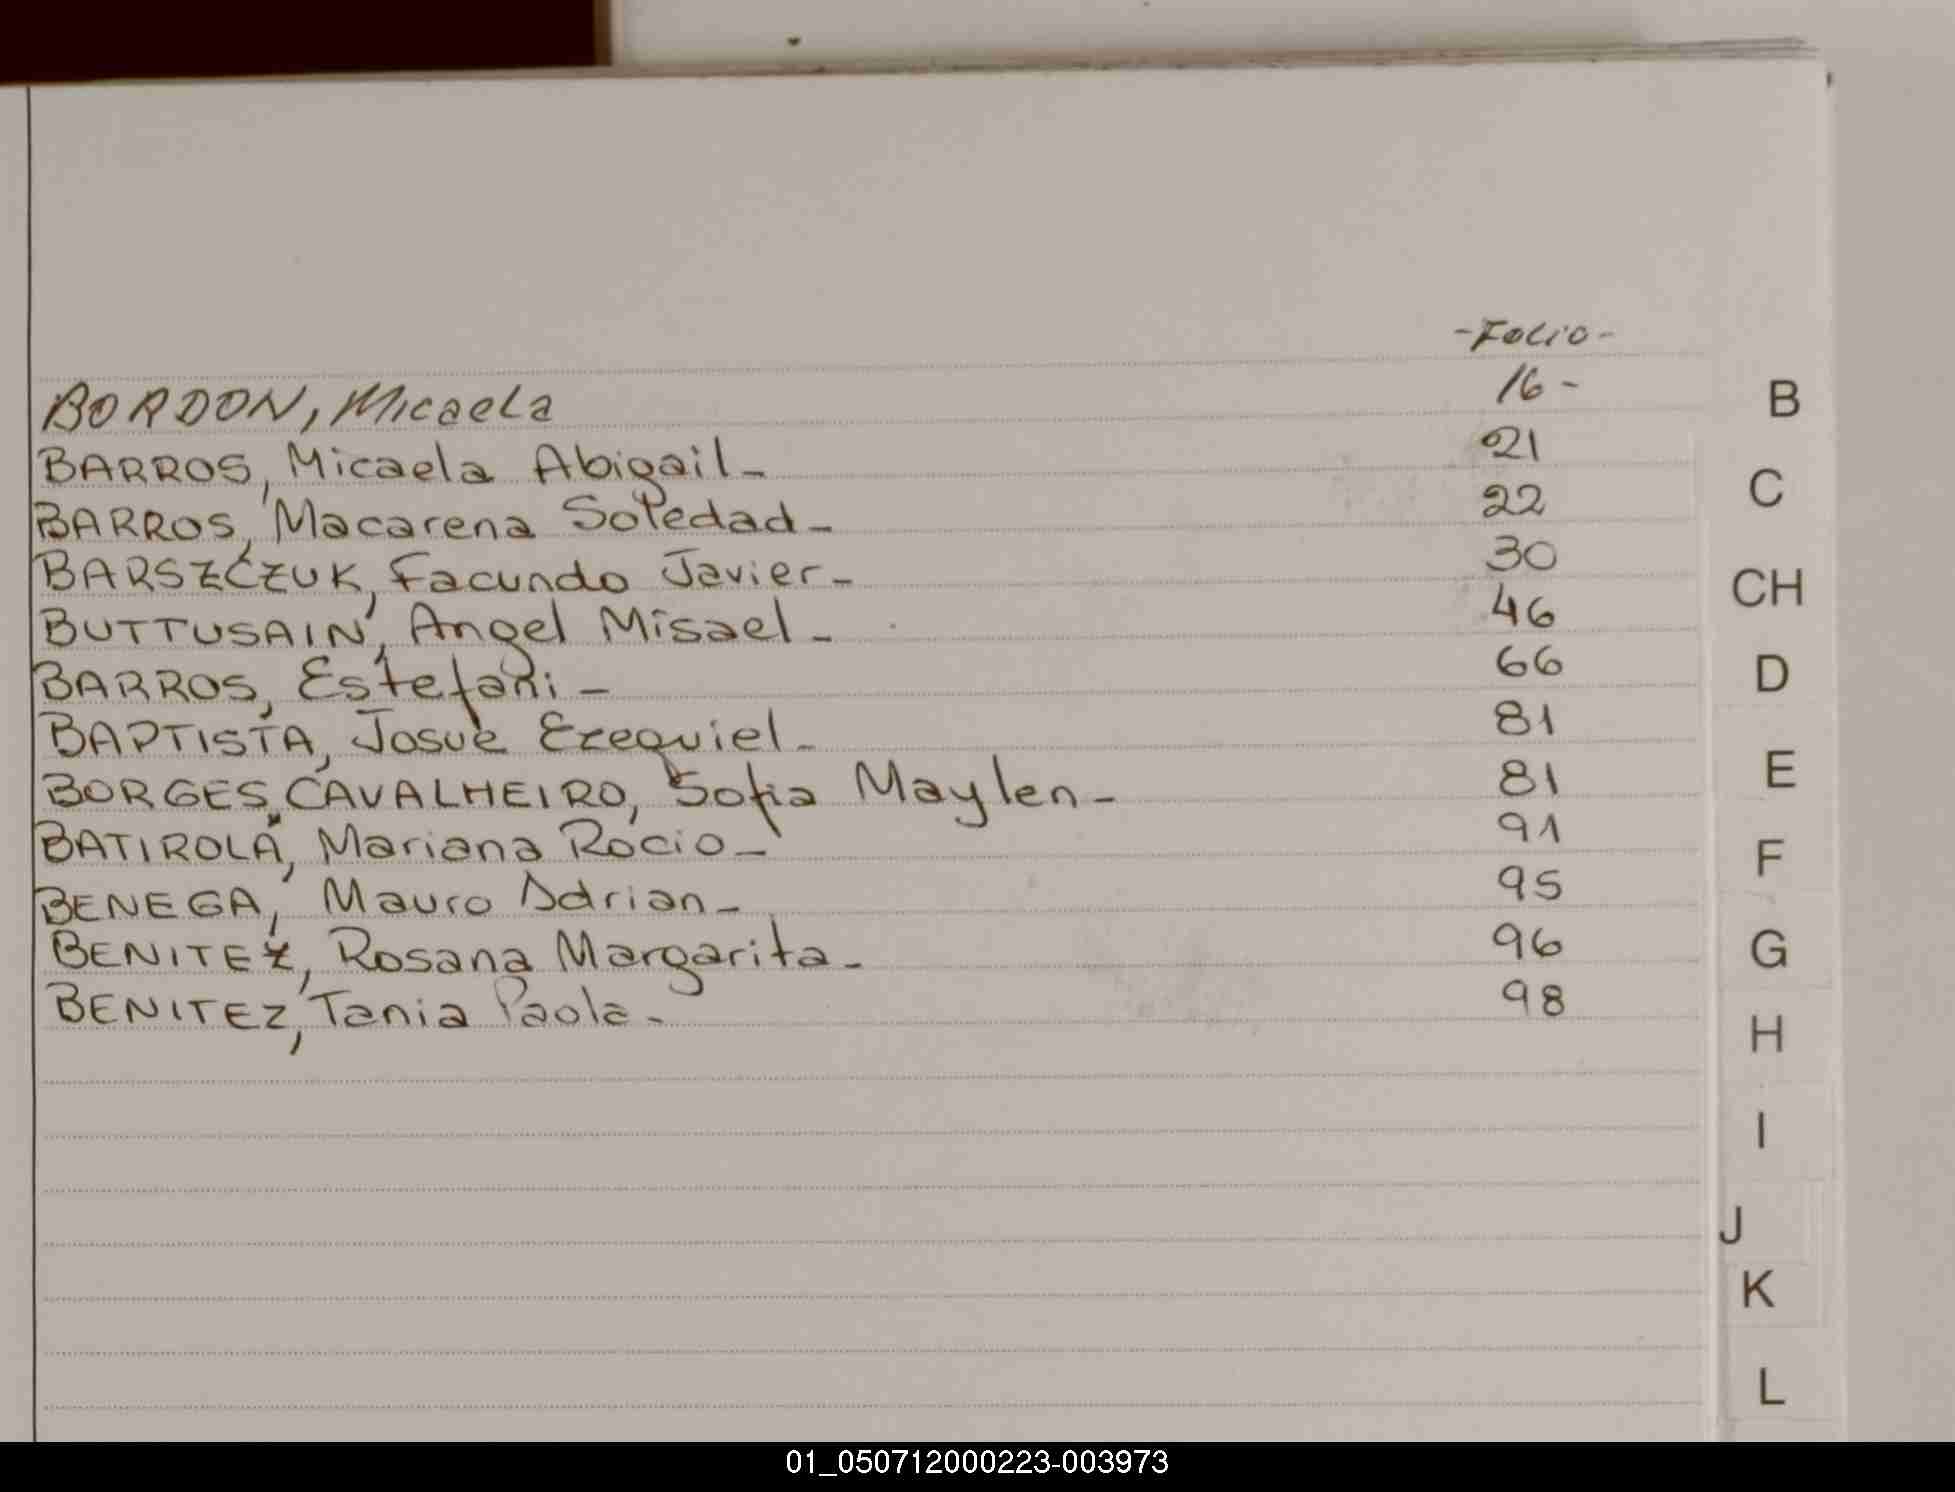 -Folio-
BORDON, Micaela 16-
BARROS, Micaela Abigail- 21
BARROS, Macarena Soledad- 22
BARSZCZUK, Facundo Javier- 30
BUTTUSAIN, Angel Misael- 46
BARROS, Estefani- 66
BAPTISTA, Josue Ezequiel- 81
BORGES CAVALHEIRO, Sofia Maylen- 81
BATIROLA, Mariana Rocio- 91
BENEGA, Mauro Adrian- 95
BENITEZ, Rosana Margarita- 96
BENITEZ, Tania Paola- 98
B
C
CH
D
E
F
G
H
I
J
K
L
01_050712000223-003973